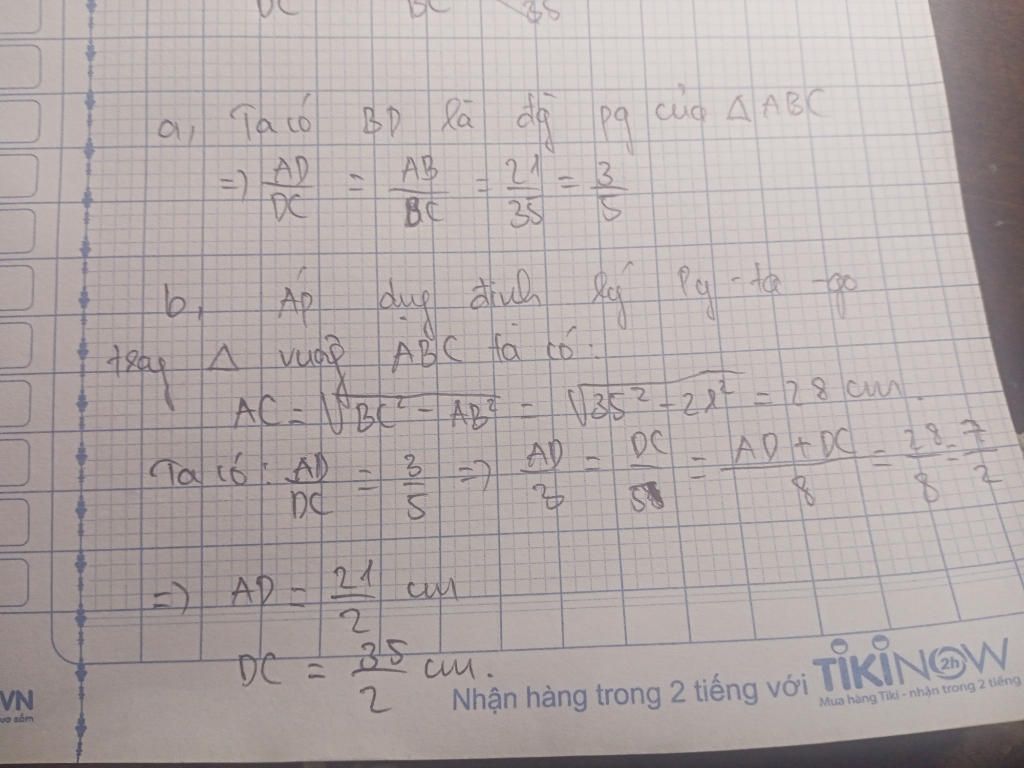 DC BC 35
a, Ta có BD là đg pg của Δ ABC
=> AD/DC = AB/BC = 21/35 = 3/5
b, Áp dụg định lý Py-ta-go
trog Δ vuôg ABC ta có:
AC = √(BC² - AB²) = √(35² - 21²) = 28 cm.
Ta có: AD/DC = 3/5 => AD/3 = DC/5 = (AD + DC)/8 = 28/8 = 7/2
=> AD = 21/2 cm
DC = 35/2 cm.
VN
Nhận hàng trong 2 tiếng với TIKINOW 2h
Mua hàng Tiki - nhận trong 2 tiếng